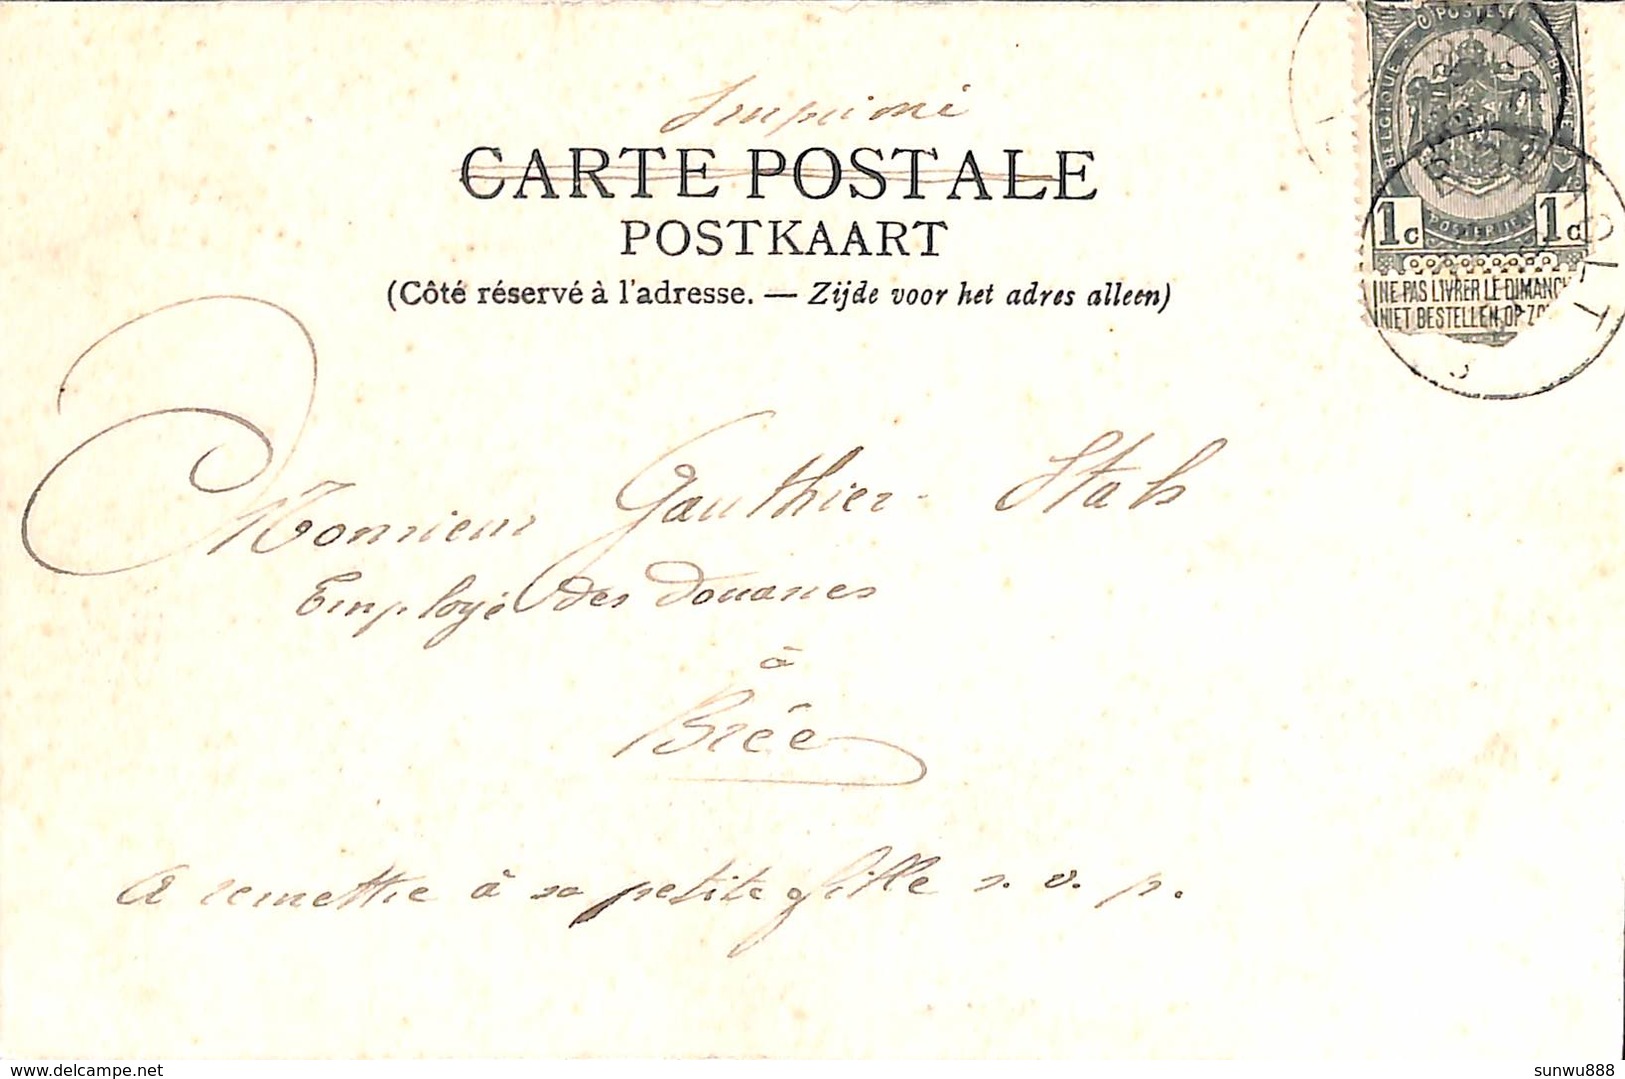 Imprimé
CARTE POSTALE
POSTKAART
(Côté réservé à l'adresse. — Zijde voor het adres alleen)
POSTES
BELGIQUE
1c 1c
NE PAS LIVRER LE DIMANC
NIET BESTELLEN OP ZO
Monsieur Gauthier-Stals
Employé des douanes
à
Brée
A remettre à sa petite fille s. v. p.
www.delcampe.net
sunwu888